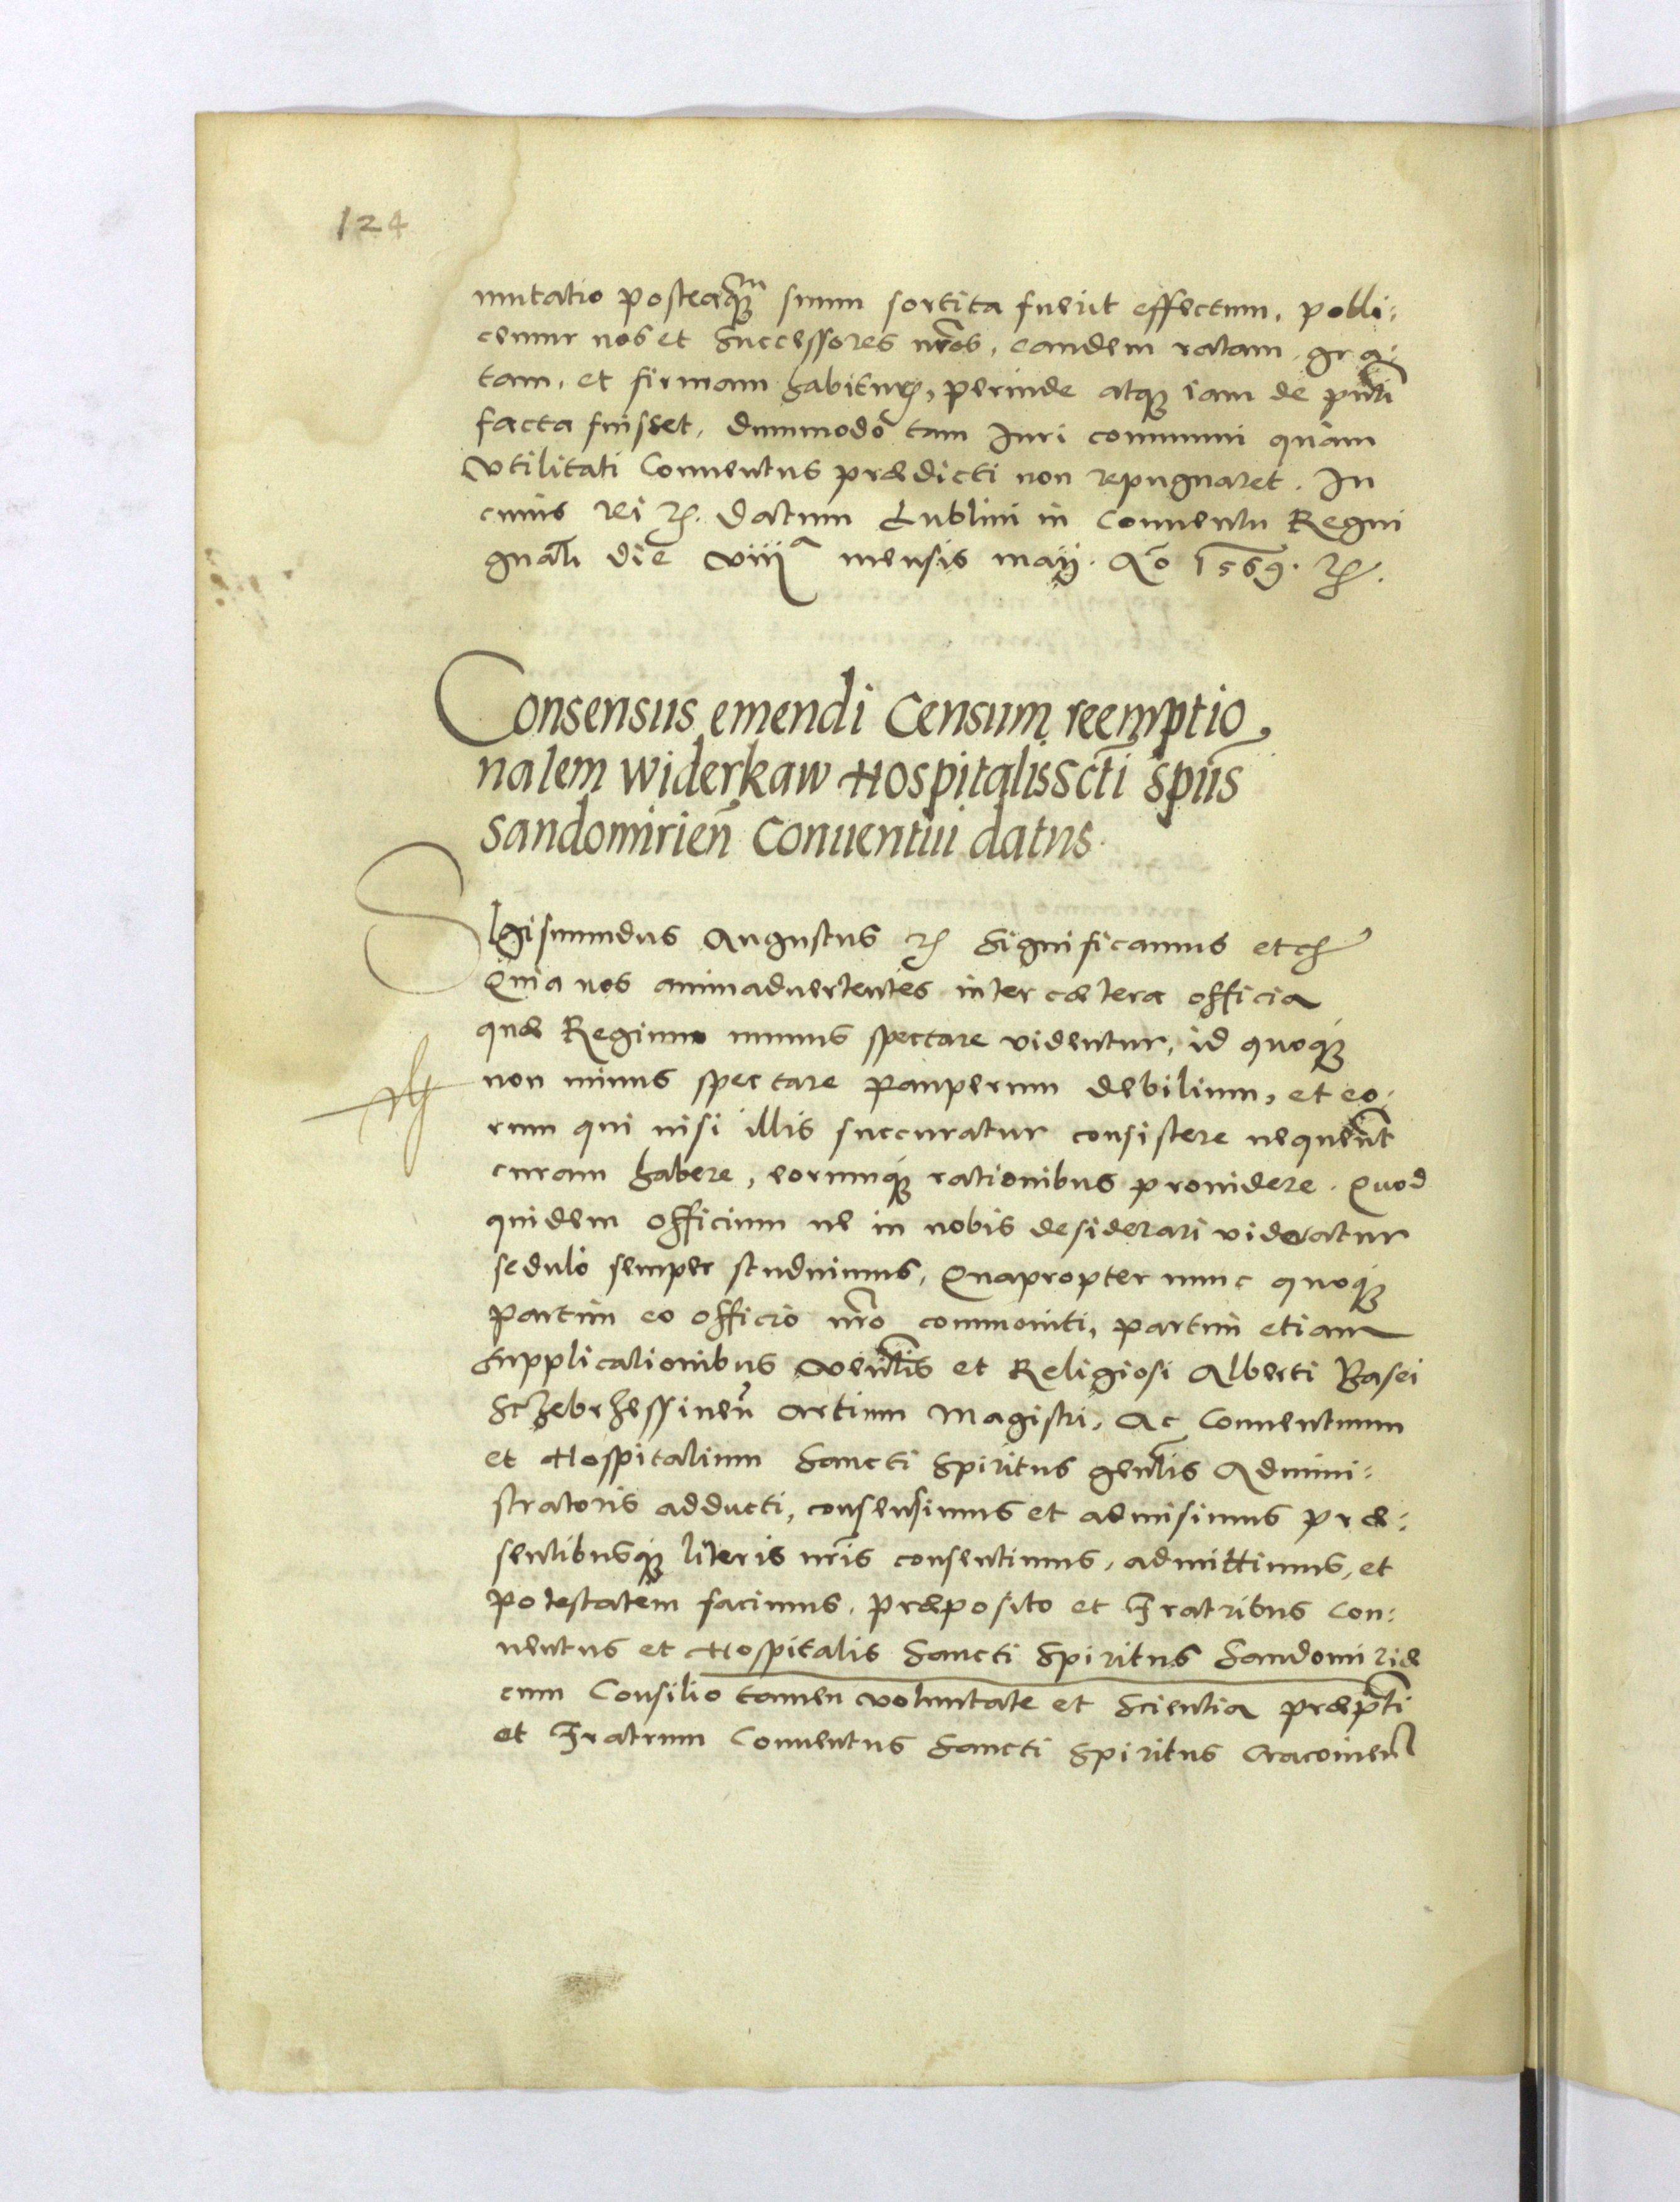 124
mutatio posteaq̃ꝫ suum sortita fuerit effectum, polli:
cemur nos et Successores nr̃os, eandem ratam, gra:
tam, et firmam habituros, perinde atqꝫ iam de pñti
facta fuisset, dummodo tam Iuri communi quam
Vtilitati Conuentus prædicti non repugnaret. In
cuius Rei ꝛc̃. Datum Lublini in Conuentu Regni
gnãli die Viiijᵃ mensis maij. Aõ 1569. ꝛc̃.
Consensus emendi Censum reemptio,
nalem Widerkaw Hospitalis Sctĩ Spũs
Sandomirieñ Conuentui datus.
SIgismundus Augustus ꝛc̃ Significamus etc̃
Quia nos animaduertentes inter cætera officia
quæ Regium munus spectare videntur, id quoqꝫ
non minus spectare pauperum debilium, et eo:
rum qui nisi illis succuratur consistere nequeũt
curam habere, eorumqꝫ rationibus prouidere. Quod
quidem officium ne in nobis desiderari videatur
sedulo semper studuimus, Quapropter nunc quoqꝫ
partim eo officio nr̃o commoniti, partim etiam
Supplicationibus Veñlis et Religiosi Alberti Basei
Sczebrzessineñ Artium Magistri, Ac Conuentuum
et Hospitalium Sancti Spiritus geñlis Admini:
stratoris adducti, consensimus et admisimus præ:
sentibusqꝫ literis nr̃is consentimus, admittimus, et
potestatem facimus, Præposito et Fratribus Con:
uentus et Hospitalis Sancti Spiritus Sandomiriæ
cum Consilio tamen voluntate et Scientia præp̃ti
et Fratrum Conuentus Sancti Spiritus Cracouieñ